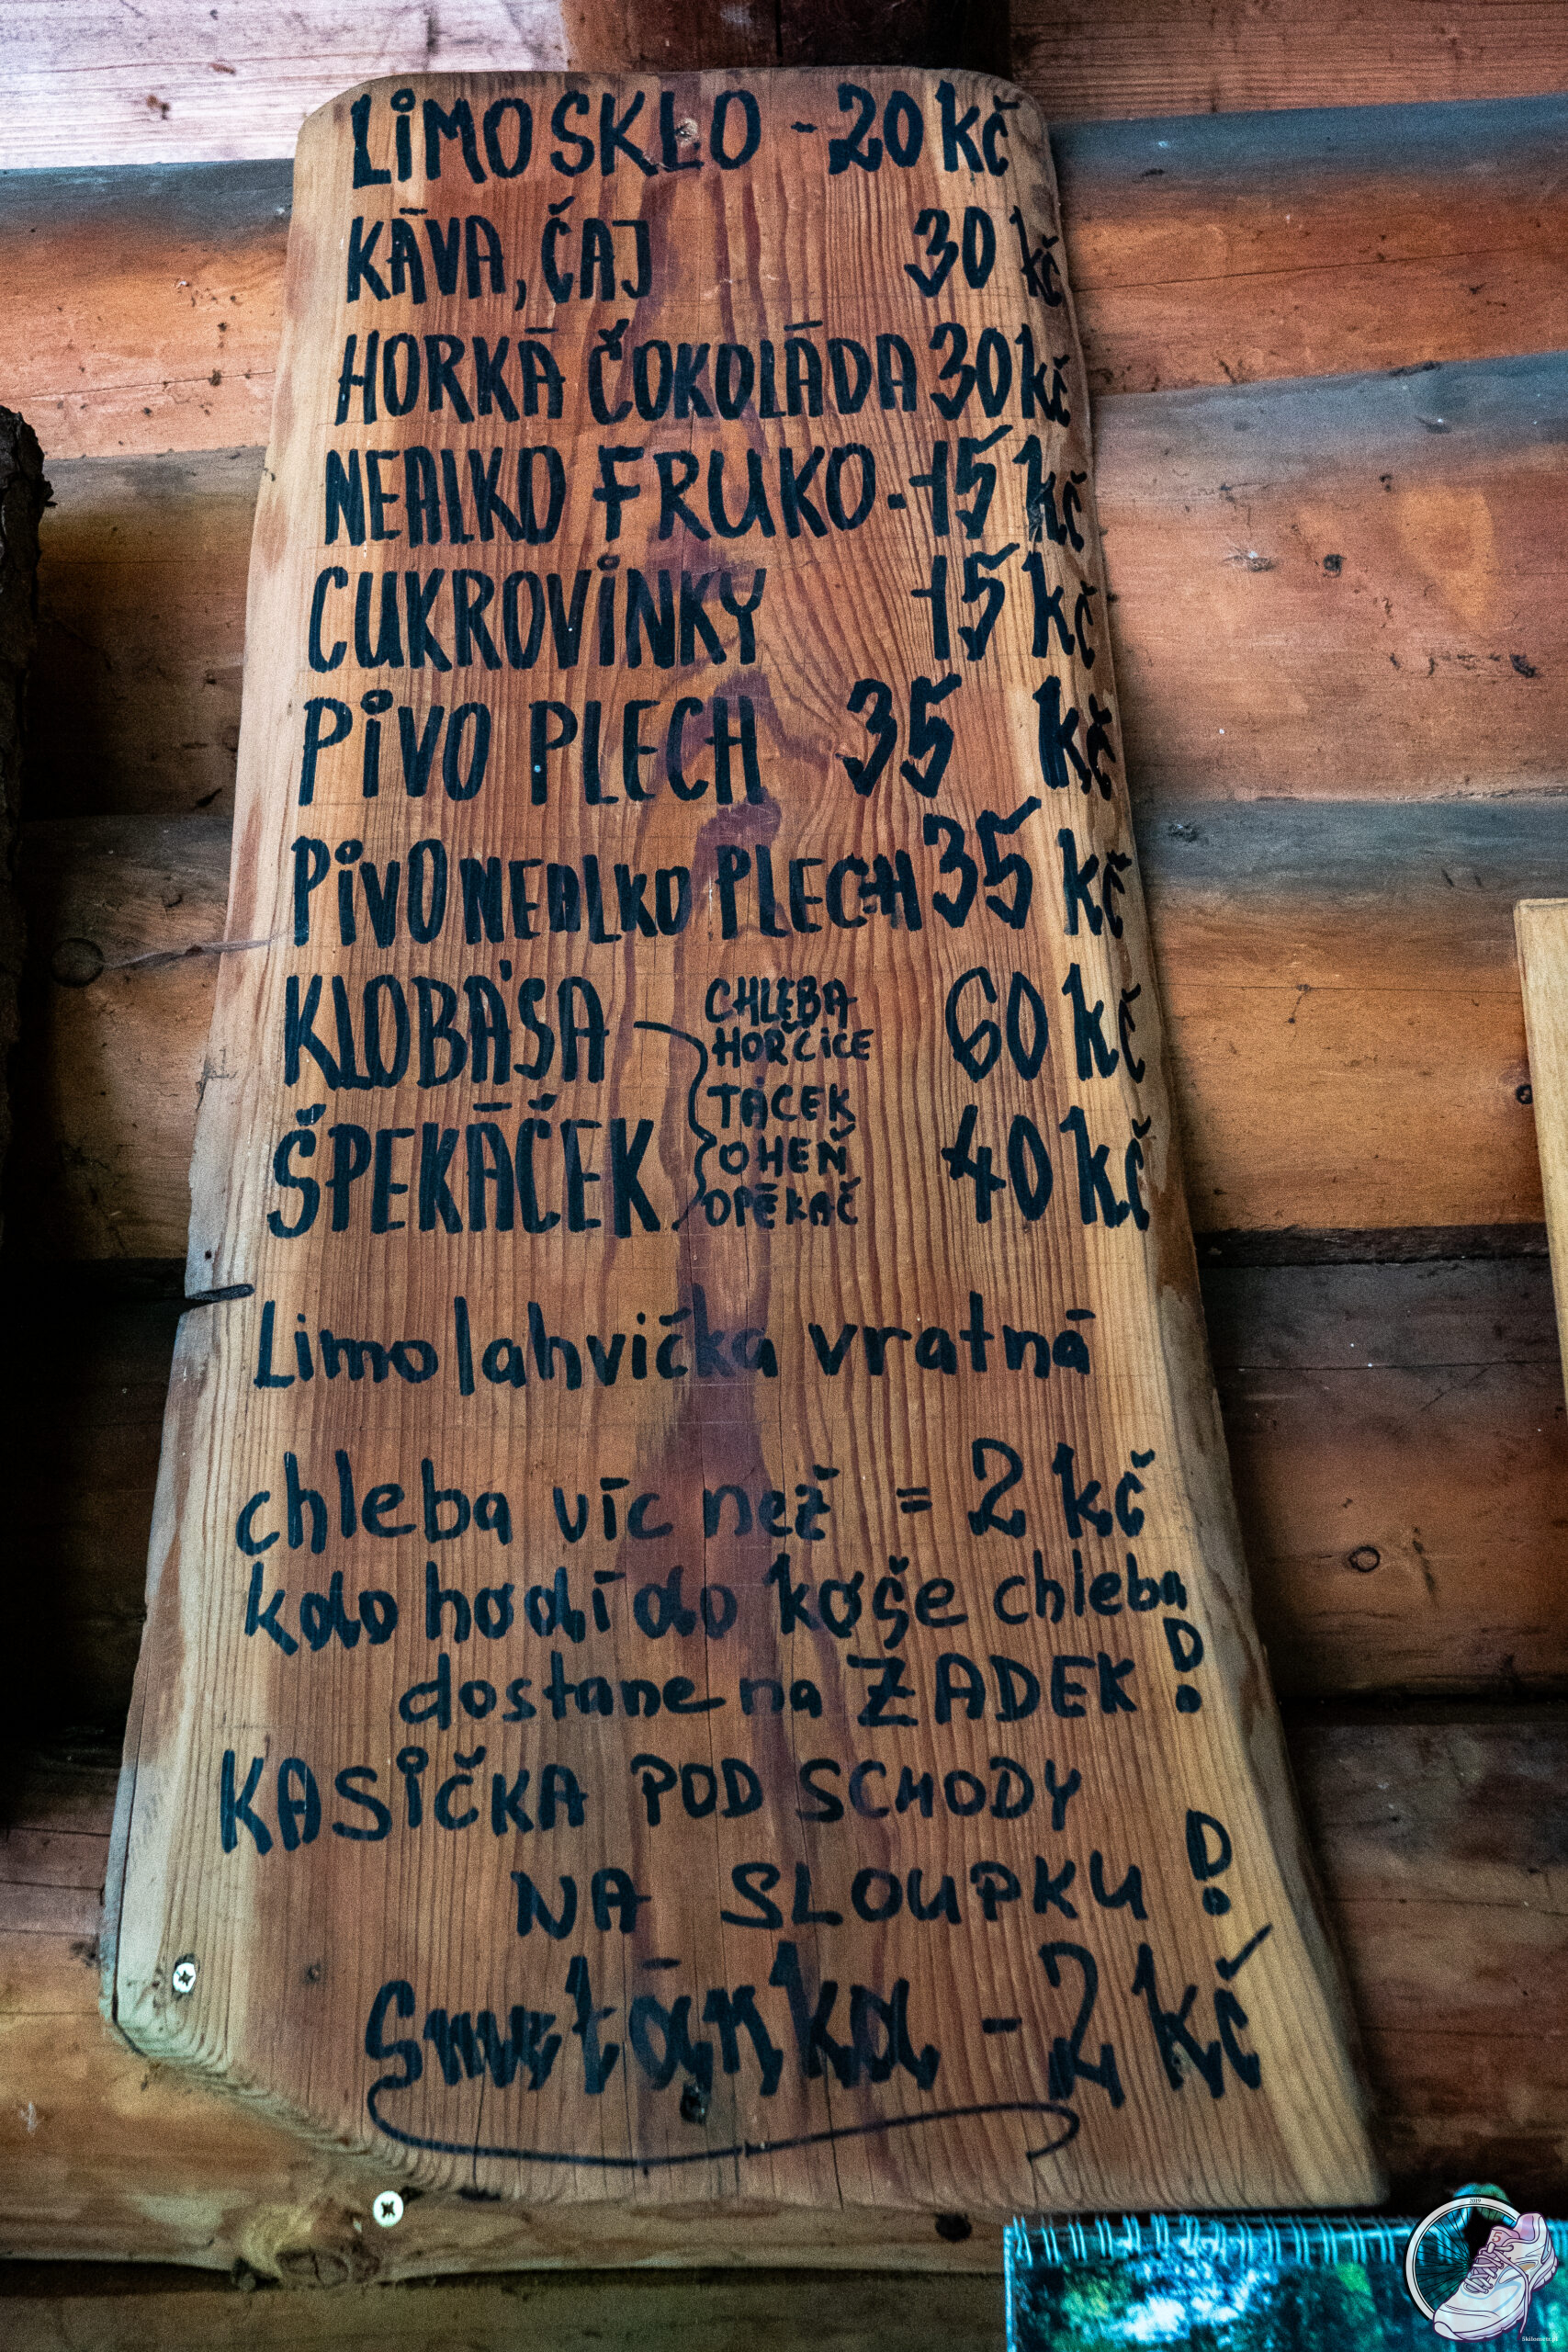 LiMO SKLO - 20 kč
KÁVA, ČAJ 30 kč
HORKÁ ČOKOLÁDA 30 kč
NEALKO FRUKO - 15 kč
CUKROViNKY 15 kč
PiVO PLECH 35 kč
PiVO NEALKO PLECH 35 kč
KLOBÁSA 60 kč
CHLEBA
HOŘČiCE
TÁCEK
OHEŇ
OPÉKAČ
ŠPEKÁČEK 40 kč
Limo lahvička vratná
chleba víc než = 2 kč
kdo hodí do koše chleba
dostane na ZADEK!
KASiČKA POD SCHODY
NA SLOUPKU!
Smetánka - 2 kč
2019